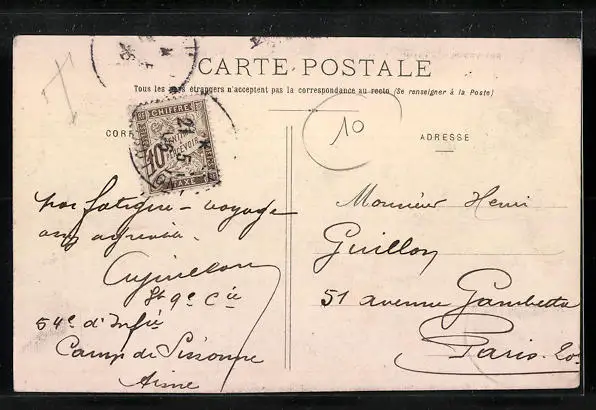 CARTE POSTALE
Tous les pays étrangers n'acceptent pas la correspondance au recto (Se renseigner à la Poste)
CORR
ADRESSE
10
CHIFFRE
10
TAXE
21 5
pas fatigué – voyage
assez agréable.
9e Cie
54e d'Infie
Camp de Sissonne
Aisne
Monsieur Henri
Guillon
51 avenue Gambetta
Paris. 20e